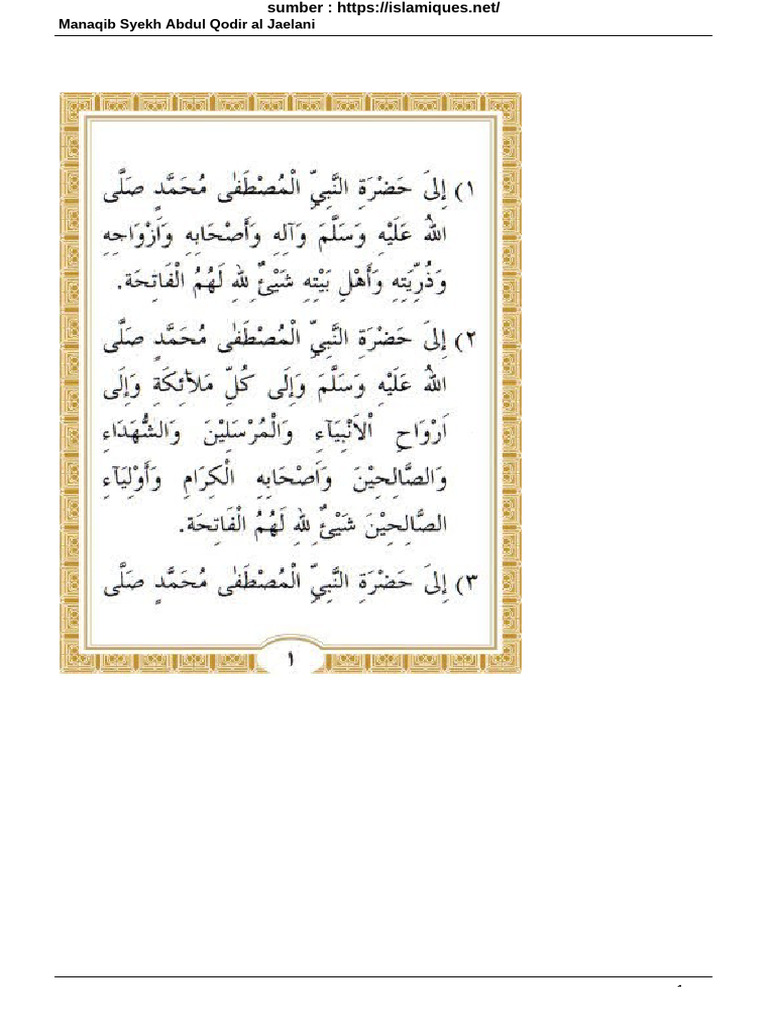 sumber : https://islamiques.net/
Manaqib Syekh Abdul Qodir al Jaelani
١) إِلىَ حَضْرَةِ النَّبِيِّ الْمُصْطَفٰى مُحَمَّدٍ صَلَّى
اللهُ عَلَيْهِ وَسَلَّمَ وَآلِهِ وَأَصْحَابِهِ وَأَزْوَاجِهِ
وَذُرِّيَتِهِ وَأَهْلِ بَيْتِهِ شَيْئٌ لِلهِ لَهُمُ الْفَاتِحَة.
٢) إِلىَ حَضْرَةِ النَّبِيِّ الْمُصْطَفٰى مُحَمَّدٍ صَلَّى
اللهُ عَلَيْهِ وَسَلَّمَ وَإِلَى كُلِّ مَلَائِكَةِ وَإِلَى
اَرْوَاحِ اْلاَنْبِيَآءِ وَالْمُرْسَلِيْنَ وَالشُّهَدَاءِ
وَالصَّالِحِيْنَ وَاَصْحَابِهِ الْكِرَامِ وَأَوْلِيَآءِ
الصَّالِحِيْنَ شَيْئٌ لِلهِ لَهُمُ الْفَاتِحَة.
٣) إِلىَ حَضْرَةِ النَّبِيِّ الْمُصْطَفٰى مُحَمَّدٍ صَلَّى
١